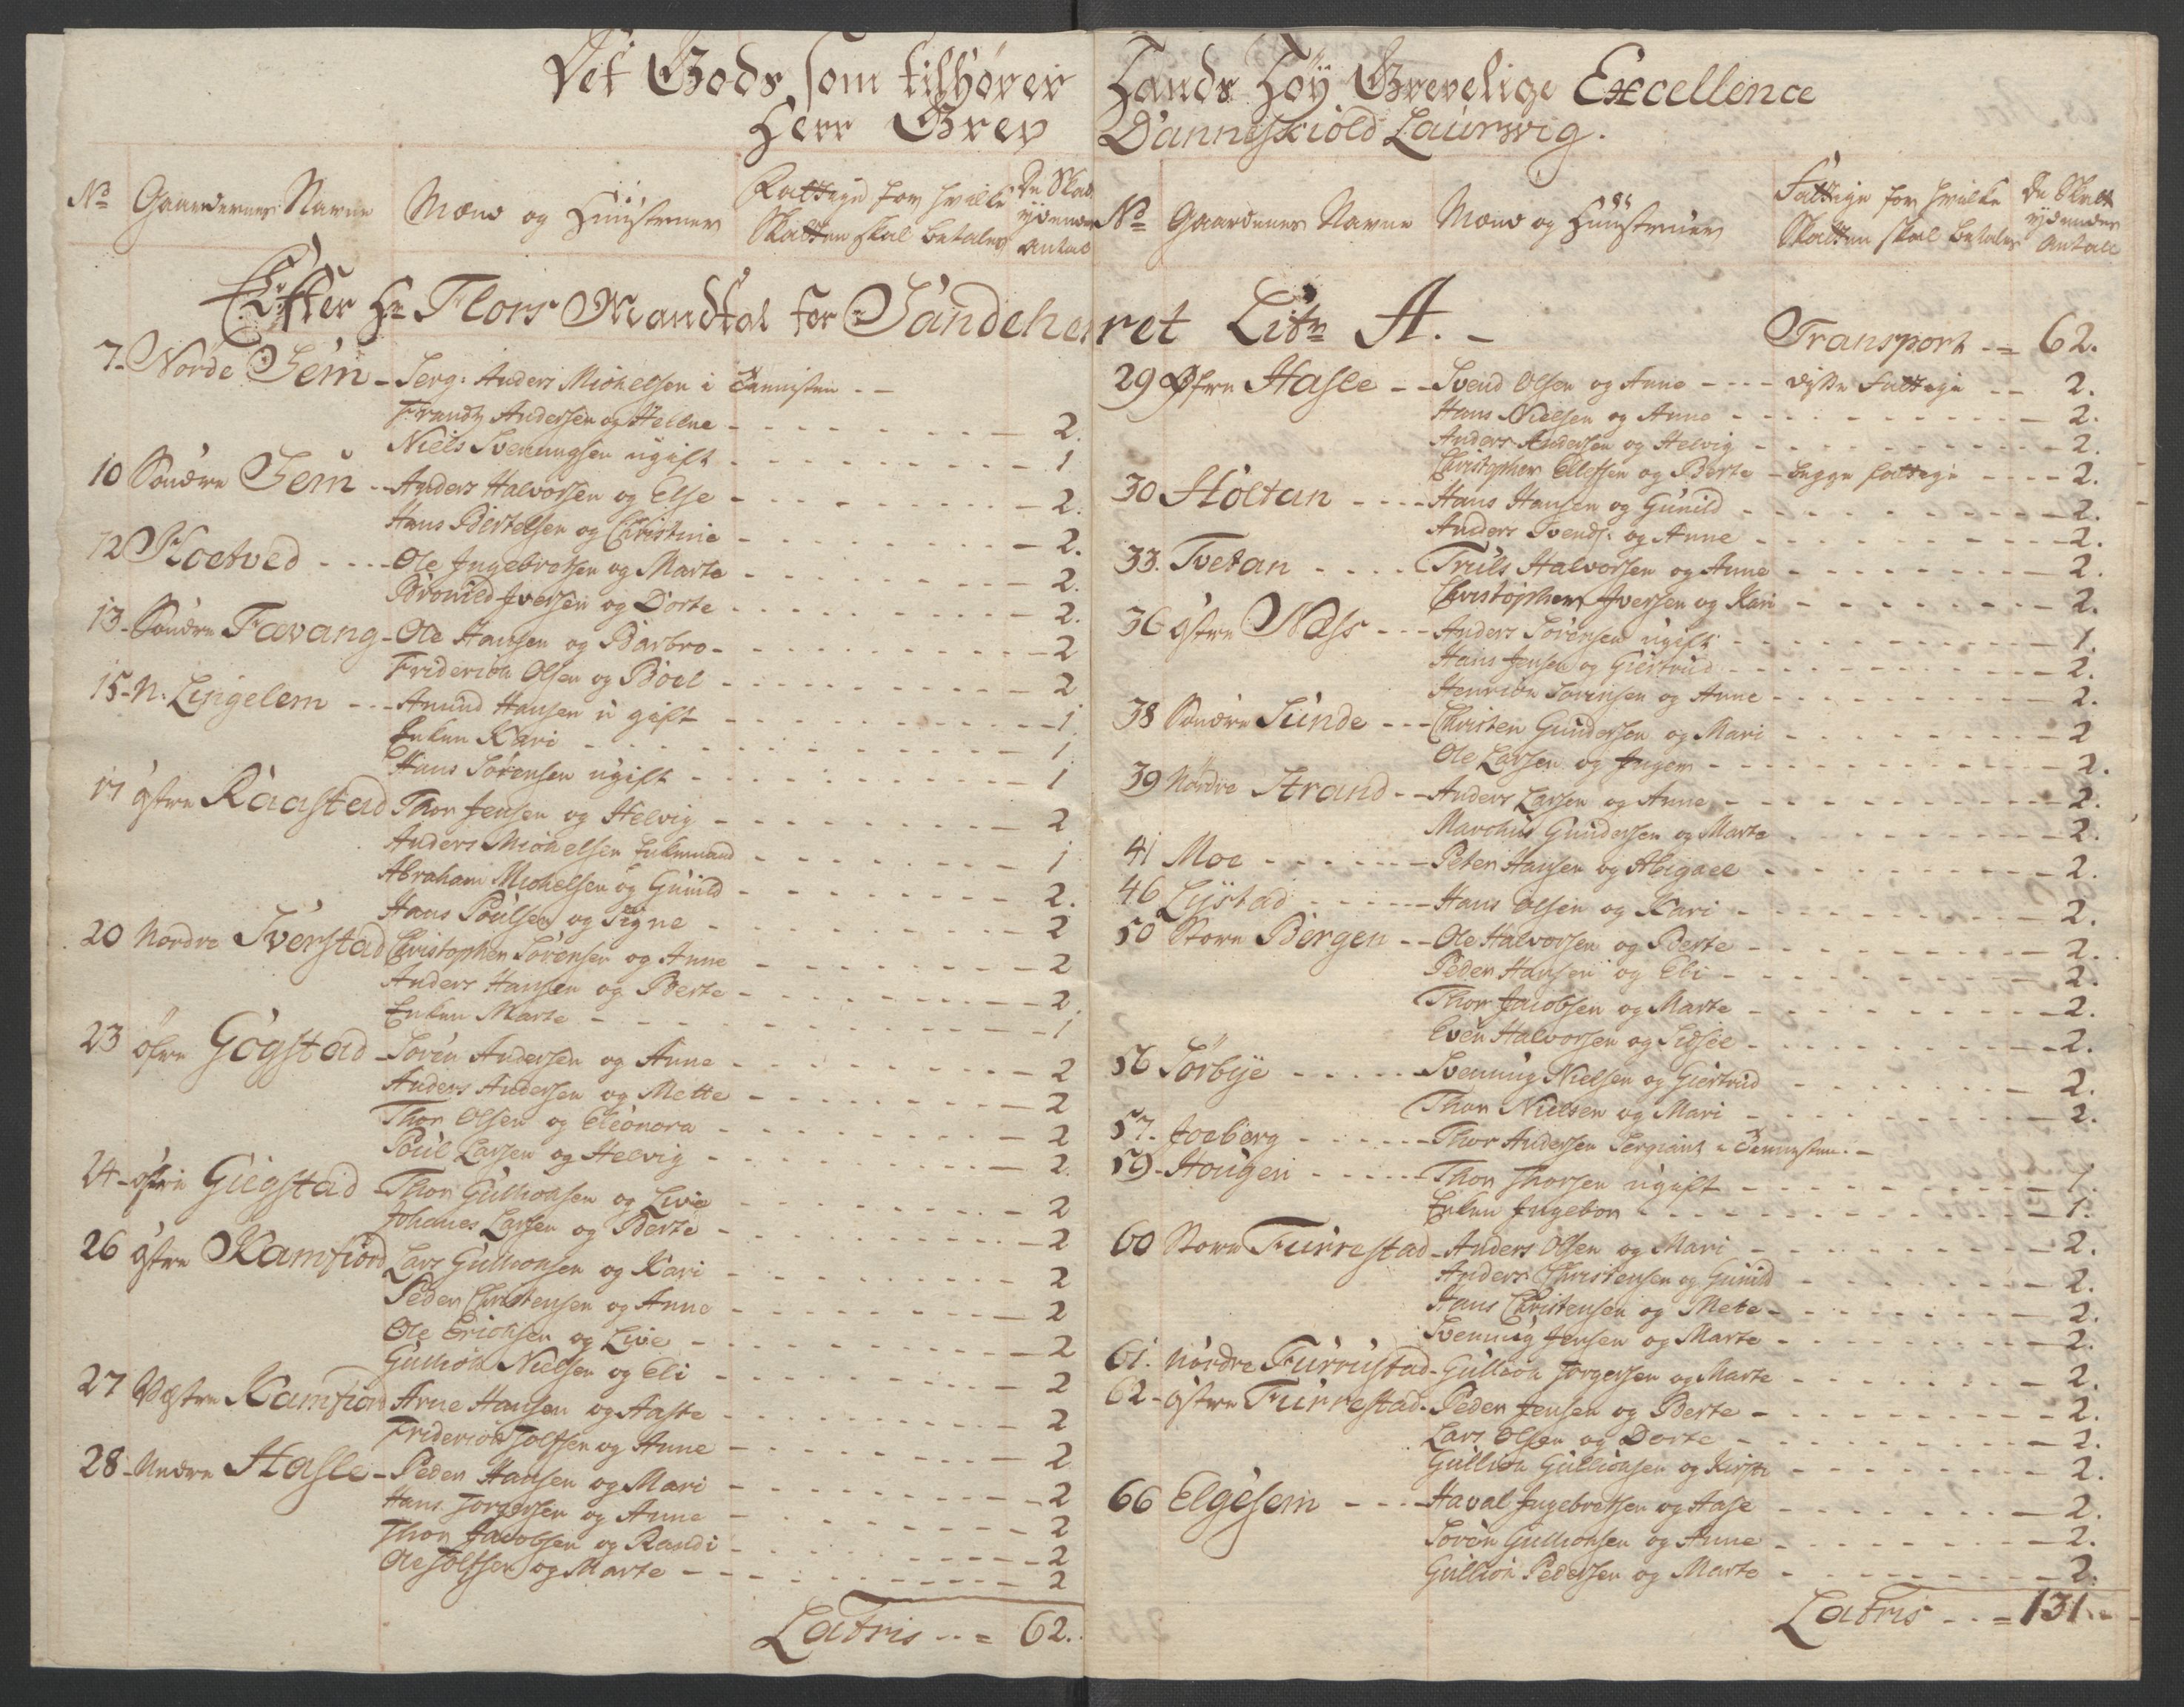 Det Gods som tilhører Hands Høy Grevelige Excellence
Herr Grev Danneskiold Laurwig.
No Gaardernes Navne Mænd og Hustruer Fattige for hvilke Skatten skal betales De Skatt ydendes Antal
Efter Hr Flors Mandtal for Sandeherret Litr A.
7- Nordre Jem - Serg: Anders Michelsen i Tienisten - -
Frandtz Andersen og Hellene - 2.
Niels Svenungsen ugift - 1
10 Søndre Jem - Anders Halvorsen og Else - 2.
Hans Bertelsen og Christine - 2.
12 Hoetved - Ole Ingebretsen og Marte - 2.
Bronild Iversen og Dorte - 2.
13- Søndre Favang - Ole Hansen og Barbro - 2
Friderich Olsen og Boel - 2
15- N. Lingelem - Amund Hansen ugift - 1
Enken Kari - 1
Hans Sørensen ugift - 1
17 østre Raastad Thor Jensen og Helvig - 2
Anders Michelsen Enkemand - 1
Abraham Michelsen og Gunild - 2.
Hans Poulsen og Signe - 2
20 Nordre Sverstad Christopher Sørensen og Anne - 2
Anders Hansen og Berte - 2
Enken Marte - 1
23 øfre Gogstad - Soren Andersen og Anne - 2
Anders Andersen og Mette - 2
Thor Olsen og Eleonora - 2
Poul Larsen og Helvig - 2.
24- østre Giegstad - Thor Gullichsen og Live - 2
Johanes Larsen og Berte - 2
26 østre Kamfiord Lars Gullichsen og Kari - 2
Peder Christensen og Anne - 2
Ole Erichsen og Live - 2
Gullich Nielsen og Eli - 2
27 Westre Kamfiord Arne Hansen og Aaste - 2
Friderich Tolfsen og Anne - 2
28- Nedre Hasle - Peder Hansen og Mari - 2
Hans Jorgersen og Anne - 2
Thor Jacobsen og Randi - 2
Ole Tolfsen og Marte - 2
Latris - - = 62.
No Gaardenes Navne Mænd og Hustruer Fattige for hvilke Skatten skal betales De Skatt ydendes Antall
Transport - = 62.
29 Øfre Hasle - Svend Olsen og Anne - diste Fattige - 2.
Hans Nielsen og Anne - 2.
Anders Andersen og Helvig - 2.
Christopher Ellefsen og Berte - begge fattige - 2.
30 Holtan - Hans Hansen og Gunild - 2.
Anders Svends: og Anne - 2.
33. Tvetan - Truls Halvorsen og Anne - 2.
Christopher Iversen og Kari - 2.
36 østre Næss - Anders Sørensen ugift - 1.
Hans Jensen og Giertrud - 2.
Henrich Sorensen og Anne - 2.
38 Søndre Sunde - Christen Gundersen og Mari - 2
Ole Larsen og Inger - 2.
39 Nordre Strand - Anders Larsen og Anne - 2.
Marchus Gundersen og Marte - 2.
41 Moe - Peter Hansen og Abigael - 2.
46 Lystad - Hans Olsen og Kari - 2.
50 Store Bergen - Ole Halvorsen og Berte - 2.
Peder Hansen og Eli - 2.
Thor Jacobsen og Marte - 2.
Even Halvorsen og Sidsel - 2.
56 Sørbye - Svenung Nielsen og Giertrud - 2.
Thor Nielsen og Mari - 2.
57. Joeberg - Thor Andersen Sergiant i Tienesten. -
59- Hougen - Thor Thorsen ugift - 1.
Enken Ingebor - 1.
60 Store Furrestad - Anders Olsen og Mari - 2.
Anders Christensen og Gunild - 2.
Hans Christensen og Mete - 2.
Svenung Jensen og Marte - 2.
61. Nordre Furrustad - Gullich Jorgersen og Marte - 2.
62- østre Furrestad - Peder Jensen og Berte - 2.
Lars Olsen og Dorte - 2.
Gullich Gullichsen og Kirsti - 2.
66 Elgesem - Haval Ingebretsen og Aase - 2.
Soren Gullichsen og Anne - 2.
Gullich Pedersen og Marte - 2.
Latris - - = 131.